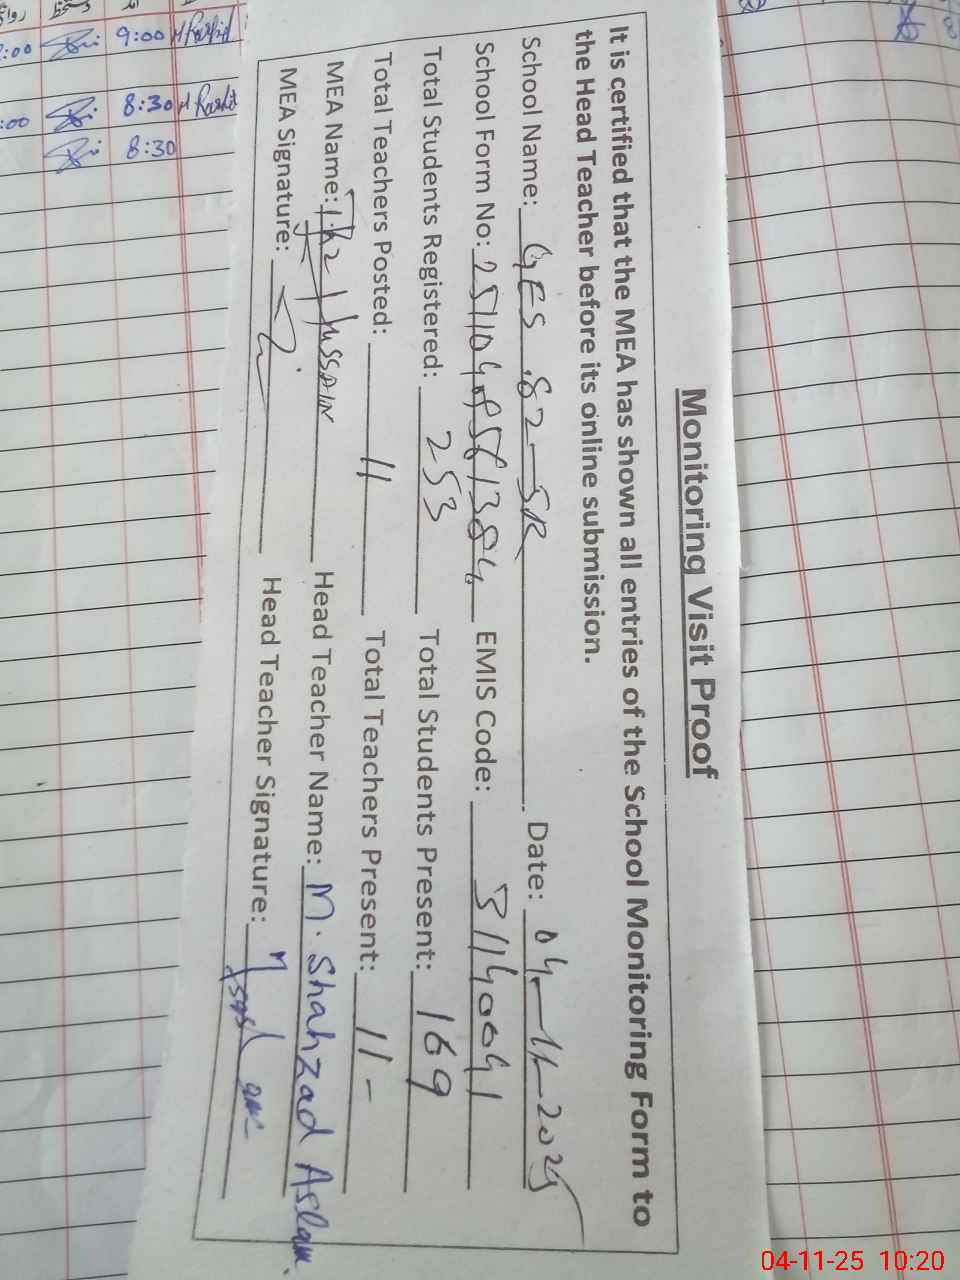 Monitoring Visit Proof
It is certified that the MEA has shown all entries of the School Monitoring Form to
the Head Teacher before its online submission.
School Name: GES 82-5R Date: 04-11-2025
School Form No: EMIS Code: 31140041
Total Students Registered: 253 Total Students Present: 169
Total Teachers Posted: 11 Total Teachers Present: 11-
MEA Name: Hussain Head Teacher Name: M. Shahzad Aslam.
MEA Signature: Head Teacher Signature:
9:00
8:30
8:30
04-11-25 10:20